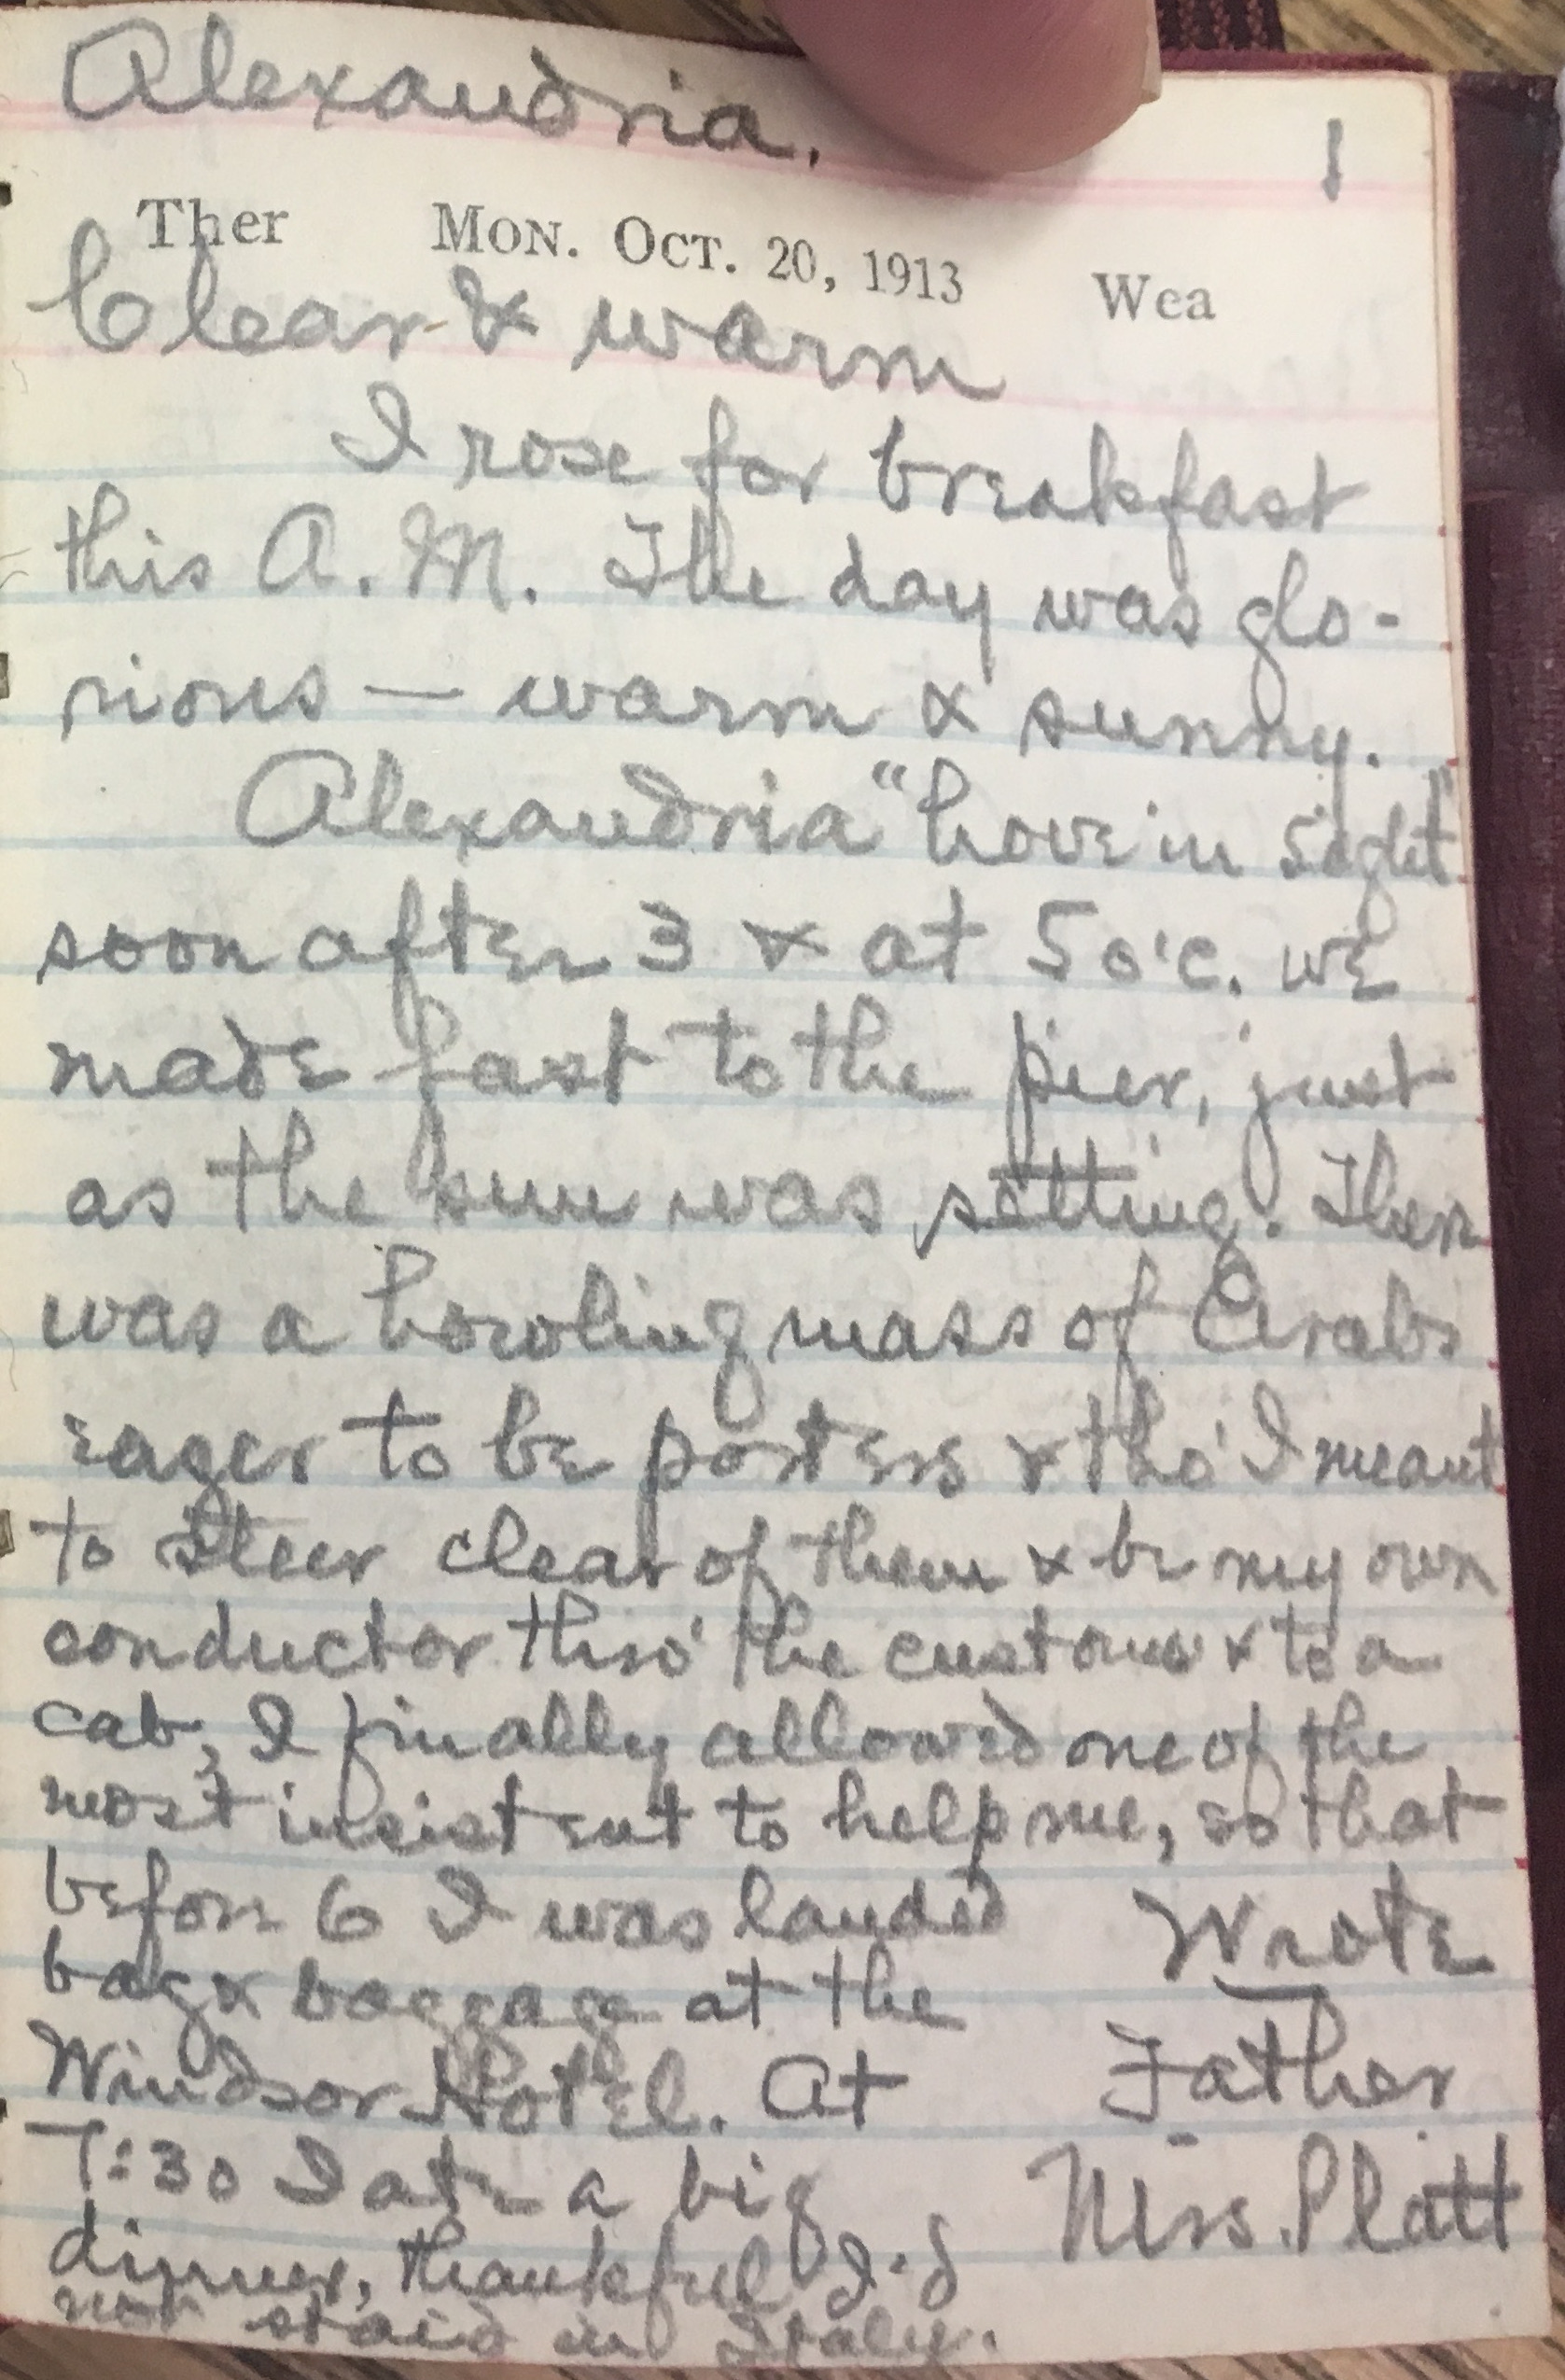 Alexandria.
1
Ther MON. OCT. 20, 1913 Wea
Clear & warm
I rose for breakfast
this A.M. The day was glo-
rious — warm & sunny.
Alexandria "hove in sight"
soon after 3 & at 5 o'c. we
made fast to the pier, just
as the sun was setting. There
was a howling mass of Arabs
eager to be porters & tho' I meant
to steer clear of them & be my own
conductor thro' the customs & to a
cab, I finally allowed one of the
most insistent to help me, so that
before 6 I was landed
bag & baggage at the
Windsor Hotel. At
7:30 I ate a big
dinner, thankful I'd
not staid in Italy.
Wrote
Father
Mrs. Platt